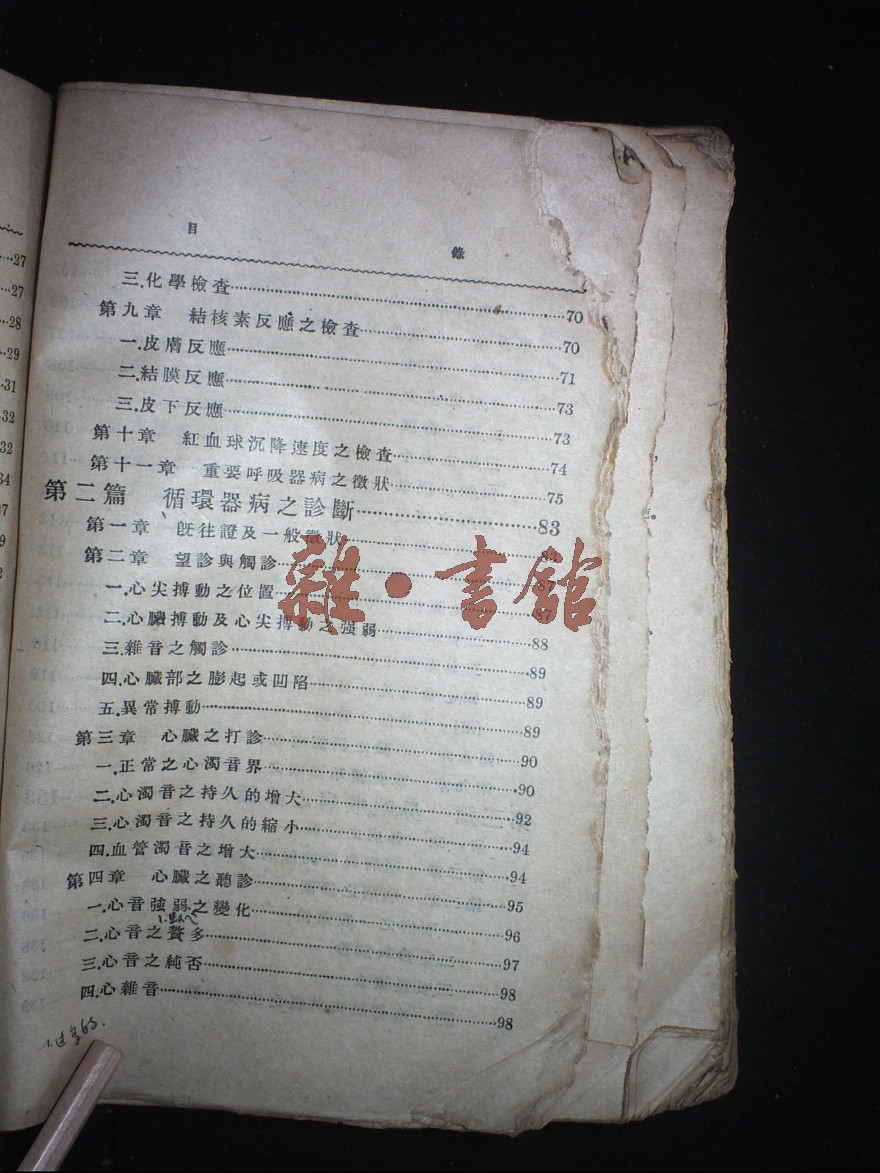 目 錄
三.化學檢查……70
第九章 結核素反應之檢查……70
一.皮膚反應……71
二.結膜反應……73
三.皮下反應……73
第十章 紅血球沉降速度之檢查……74
第十一章 重要呼吸器病之徵狀……75
第二篇 循環器病之診斷……83
第一章 旣往證及一般徵狀……83
第二章 望診與觸診……87
一.心尖搏動之位置……87
二.心臟搏動及心尖搏動之强弱……88
三.雜音之觸診……89
四.心臟部之膨起或凹陷……89
五.異常搏動……89
第三章 心臟之打診……90
一.正常之心濁音界……90
二.心濁音之持久的增大……92
三.心濁音之持久的縮小……94
四.血管濁音之增大……94
第四章 心臟之聽診……95
一.心音強弱之變化……96
二.心音之贅多……97
三.心音之純否……98
四.心雜音……98
雜·書館
27
27
28
29
31
32
32
34